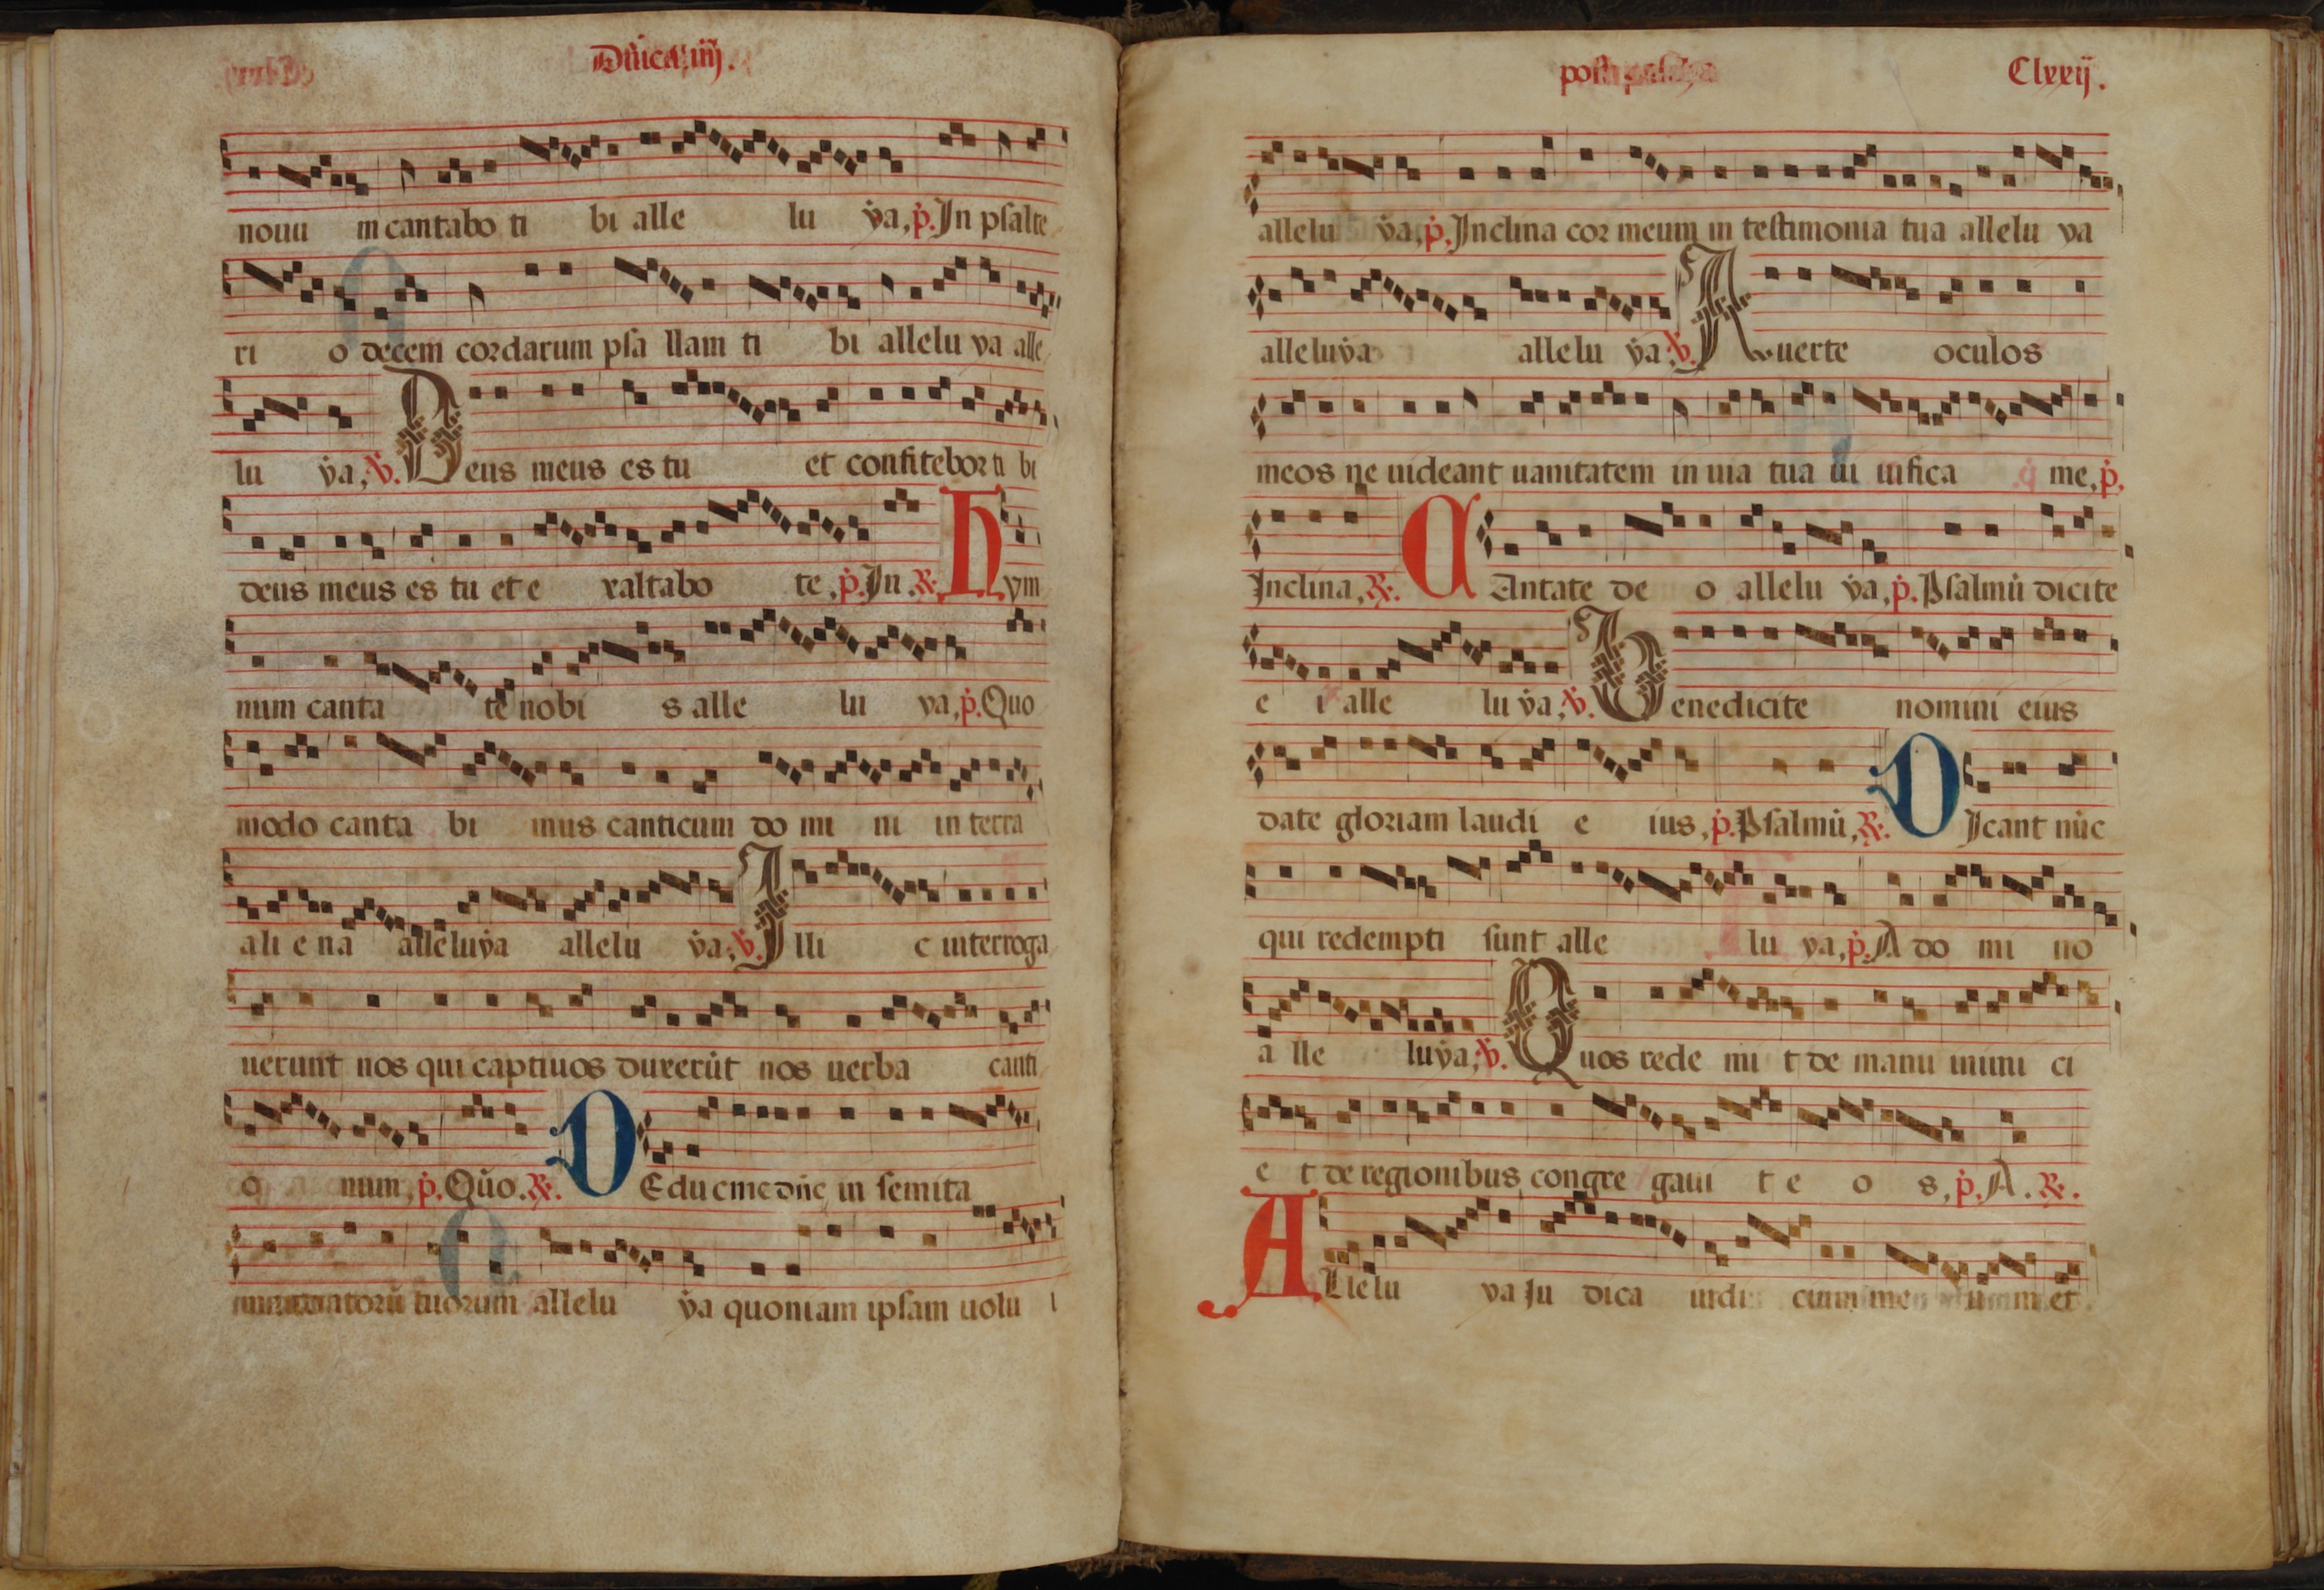 Dñica .iiij.
nouu m cantabo ti bi alle lu ẏa, ṗ. In psalte
ri o decem cordarum psa llam ti bi allelu ya alle
lu ẏa, v̇. Deus meus es tu et confitebor ti bi
deus meus es tu et e xaltabo te, ṗ. In .R. hym
num canta te nobi s alle lu ya, ṗ. Quo
modo canta bi mus canticum do mi ni in terra
ali e na alleluẏa allelu ẏa, v̇. Illi c interroga
uerunt nos qui captiuos duxerūt nos uerba canti
o num, ṗ. Quo. R. DEduc me dñe in semita
mandatorū tuorum allelu ẏa quoniam ipsam uolu i
post pascha Clxxij.
allelu ẏa, ṗ. Inclina cor meum in testimonia tua allelu ya
alleluẏa allelu ẏa v̇. Auerte oculos
meos ne uideant uanitatem in uia tua ui uifica me, ṗ.
Inclina, R. CAntate de o allelu ẏa, ṗ. Psalmū dicite
e i alle lu ẏa, v̇. Benedicite nomini eius
date gloriam laudi e ius, ṗ. Psalmū, R. DIcant nūc
qui redempti sunt alle lu ya, ṗ. A do mi no
a lle luẏa, v̇. Quos rede mi t de manu inimi ci
e t de regionibus congre gaui t e o s, ṗ. A. R.
ALlelu ya Iu dica iudi cium me u m et